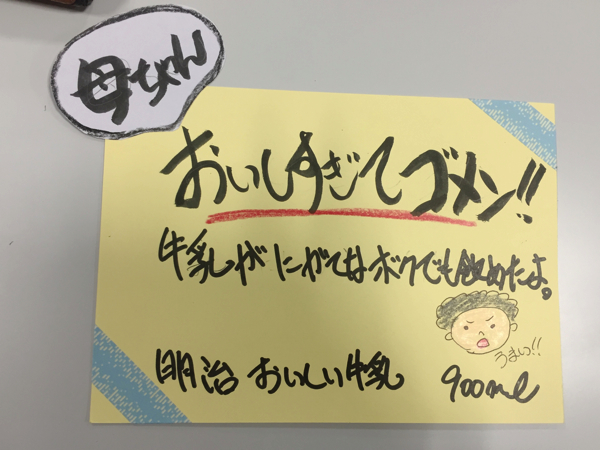 母ちゃん
おいしすぎてゴメン!!
牛乳がにがてなボクでも飲めたよ。
うまいっ!!
明治 おいしい牛乳 900ml